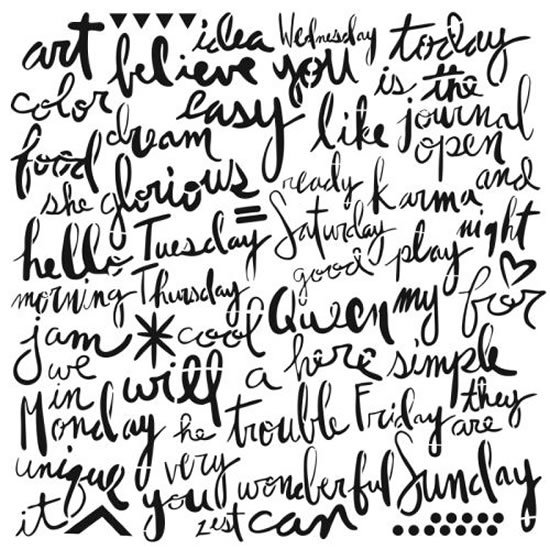 art idea Wednesday today
believe you is the
color easy like journal
food dream open
she glorious ready karma and
hello Tuesday Saturday play night
morning Thursday good
jam cool Queen my for
we will a here simple
in
Monday he trouble Friday they
are
unique very wonderful Sunday
it you zest can